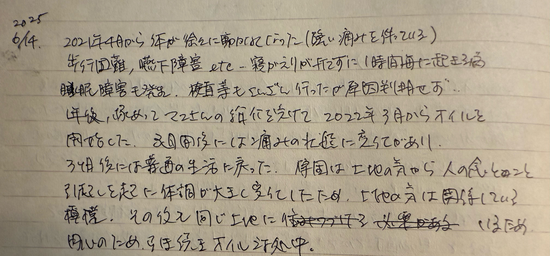 2025
6/14. 2021年4月から体が徐々に動かなくなった(強い痛みを伴っている)
歩行困難、嚥下障害 etc – 寝がえりが出来ずに1時間毎に起き
睡眠障害も発症。検査等もさんざん行ったが原因判明せず。
1年後、 さんの紹介を受けて2022年3月からオイルを
開始した。 日間後には痛みの状態に変化があり、
3ヶ月後には普通の生活に戻った。原因は土地の気から人の
引起しを起こし体調が大きく変化したため、土地の気は関係している
模様。その後も同じ土地に いるため
用心のため、引き続きオイル対処中。